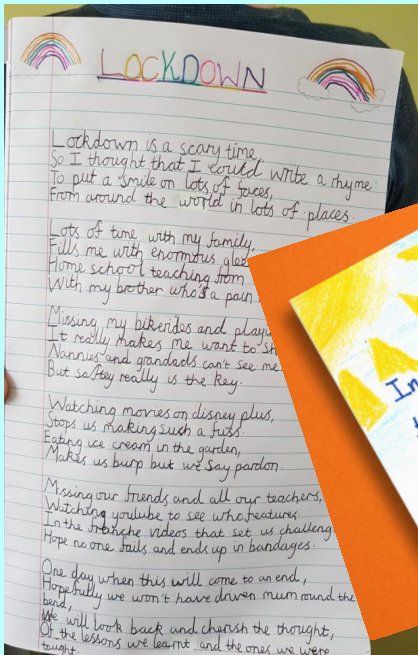 LOCKDOWN
Lockdown is a scary time,
So I thought that I could write a rhyme.
To put a smile on lots of faces,
From around the world in lots of places.
Lots of time with my family,
Fills me with enormous glee
Home school teaching from
With my brother who's a pain
Missing my bikerides and
It really makes me want to
Nannies and grandads can't see me
But saftey really is the key.
Watching movies on disney plus,
Stops us making such a fuss.
Eating ice cream in the garden,
Makes us burp but we say pardon.
Missing our friends and all our teachers,
Watching youtube to see who features.
In the franche videos that set us
Hope no one fails and ends up in bandages.
One day when this will come to an end,
Hopefully we won't have driven mum round the
bend,
We will look back and cherish the thought,
Of the lessons we learnt and the ones we were
taught.
In